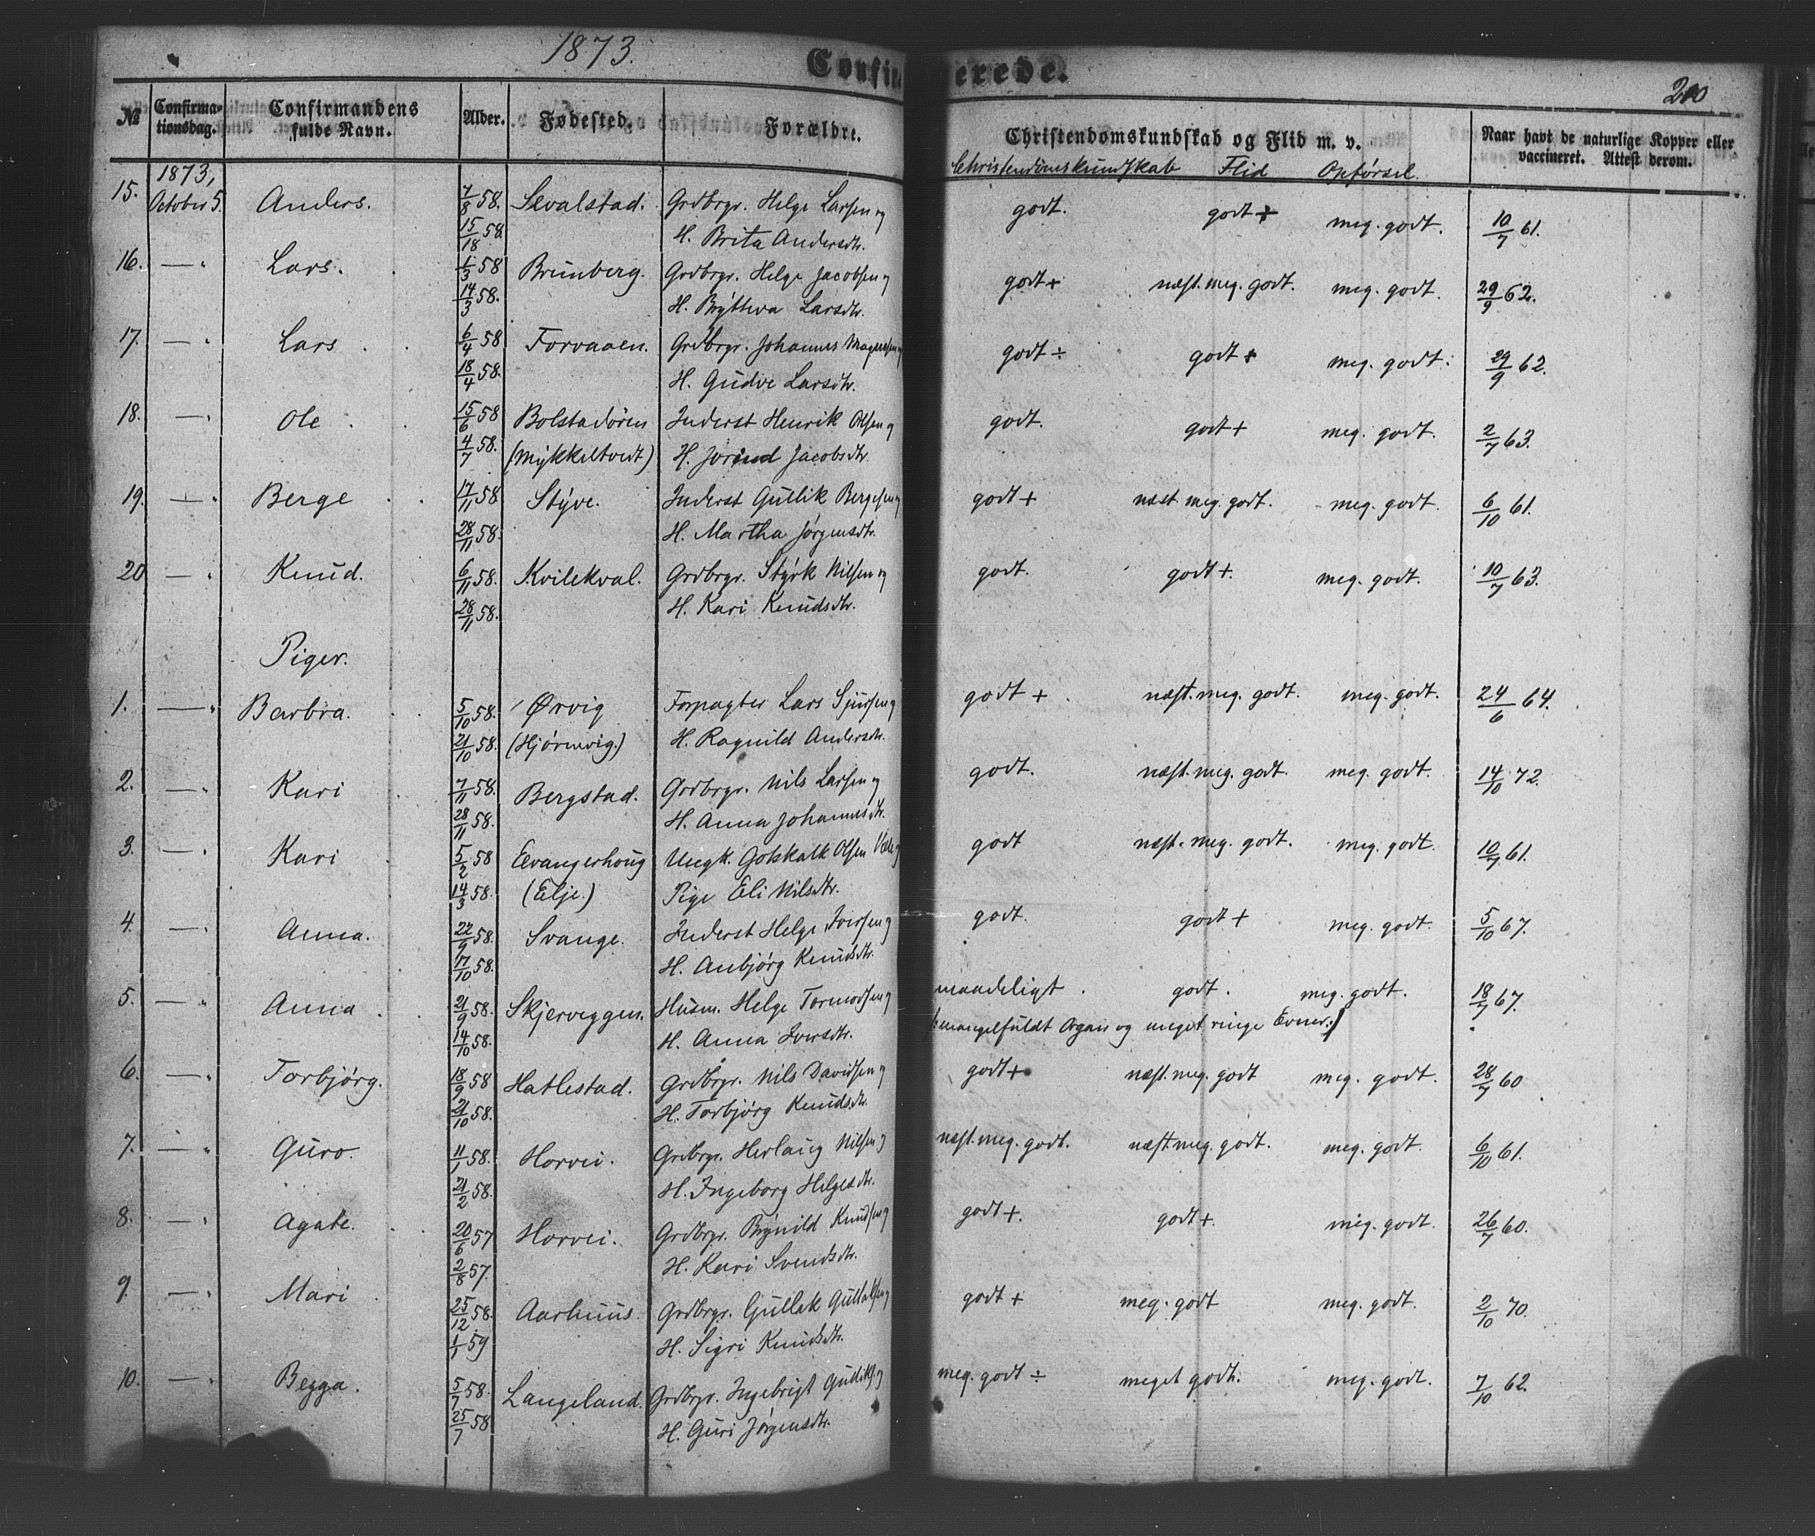 1873.
Confirmerede.
200
№ Confirmationsdag. Confirmandens fulde Navn. Alder. Fødested. Forældre. Christendomskundskab og Flid m. v. Naar havt de naturlige Kopper eller vaccineret. Attest derom.
Christendomskundskab Flid Opførsel.
1873,
15. October 5. Anders. 7/8 58. Sevalstad. Grdbrgr. Helge Larsen og godt. godt + meg. godt. 10/7 61.
15/18 58. H. Brita Andersdtr.
16. — " Lars. 1/3 58 Brunberg. Grdbrgr. Helge Jacobsen og godt + næst. meg. godt. meg. godt. 29/9 62.
14/3 58. H. Bytteva Larsdtr.
17. — " Lars 6/4 58 Forvaaen. Grdbrgr. Johannes Magnesen og godt ÷ godt + meg. godt. 29/9 62.
18/4 58. H. Gudve Larsdtr.
18. — " Ole 15/6 58 Bolstadøren Inderst Henrik Olsen og godt. godt + meg. godt. 2/7 63.
4/7 58. (Mykkeltvedt) H. Jorind Jacobsdtr.
19. — " Berge 17/11 58 Styve. Inderst Gullik Bergesen og godt + næst meg. godt. meg. godt. 6/10 61.
28/11 58. H. Martha Jørgensdtr.
20 — " Knud. 6/11 58. Kvilekval. Grdbrgr. Styrk Nilsen og godt. godt +. meg. godt. 10/7 63.
28/11 58. H. Kari Knudsdtr.
Piger.
1. — " Barbra. 5/10 58. Ørvig Forpagter Lars Sjursen og godt + næst. meg. godt. meg. godt. 24/6 64.
21/10 58. (Hjørnevig.) H. Ragnild Andersdtr.
2. — " Kari 7/11 58. Bergstad. Grdbrgr. Nils Larsen og godt. næst. meg. godt meg. godt. 14/10 72.
28/11 58. H. Anna Johannesdtr.
3. — " Kari 5/2 58 Evangerhoug Ungk. Gotskalk Olsen og godt næst. meg. godt. meg. godt. 10/7 61.
14/3 58. (Elje.) Pige Eli Nilsdtr.
4. — " Anna. 22/9 58. Svange. Inderst Helge Iversen og godt. godt + meg. godt. 5/10 67.
17/10 58. H. Anbjørg Knudsdtr.
5. — " Anna 21/9 58. Skjerveggen. Husm. Helge Tormodsen og maadeligt. godt. meg. godt. 18/7 67.
14/10 58. H. Anna Iversdtr. (: mangelfuldt Organ og meget ringe Evner :)
6. — " Torbjørg. 18/9 58 Hatlestad. Grdbrgr. Nils Davidsen og godt + næst. meg. godt meg. godt. 28/7 60
21/10 58. H. Torbjørg Knudsdtr.
7. — " Guro. 11/1 58. Horvei. Grdbrgr. Herlaug Nilsen og næst. meg. godt. næst meg. godt. meg. godt. 6/10 61.
21/2 58. H. Ingeborg Helgesdtr.
8. — " Agate. 20/6 57 Horvei. Grdbrgr. Brynild Knudsen og godt +. godt +. meg. godt. 26/7 60.
2/8 57. H. Kari Svendsdtr.
9. — " Mari 25/12 58. Aarhuus. Grdbrgr. Gullak Gullaksen og godt + meg. godt meg. godt. 2/10 70.
1/1 59 H. Sigri Knudsdtr.
10. — " Begga. 5/7 58. Langeland. Grdbrgr. Ingebrigt Gudiks. og meg. godt ÷ meget godt. meg. godt. 7/10 62.
25/7 58 H. Guri Jørgensdtr.